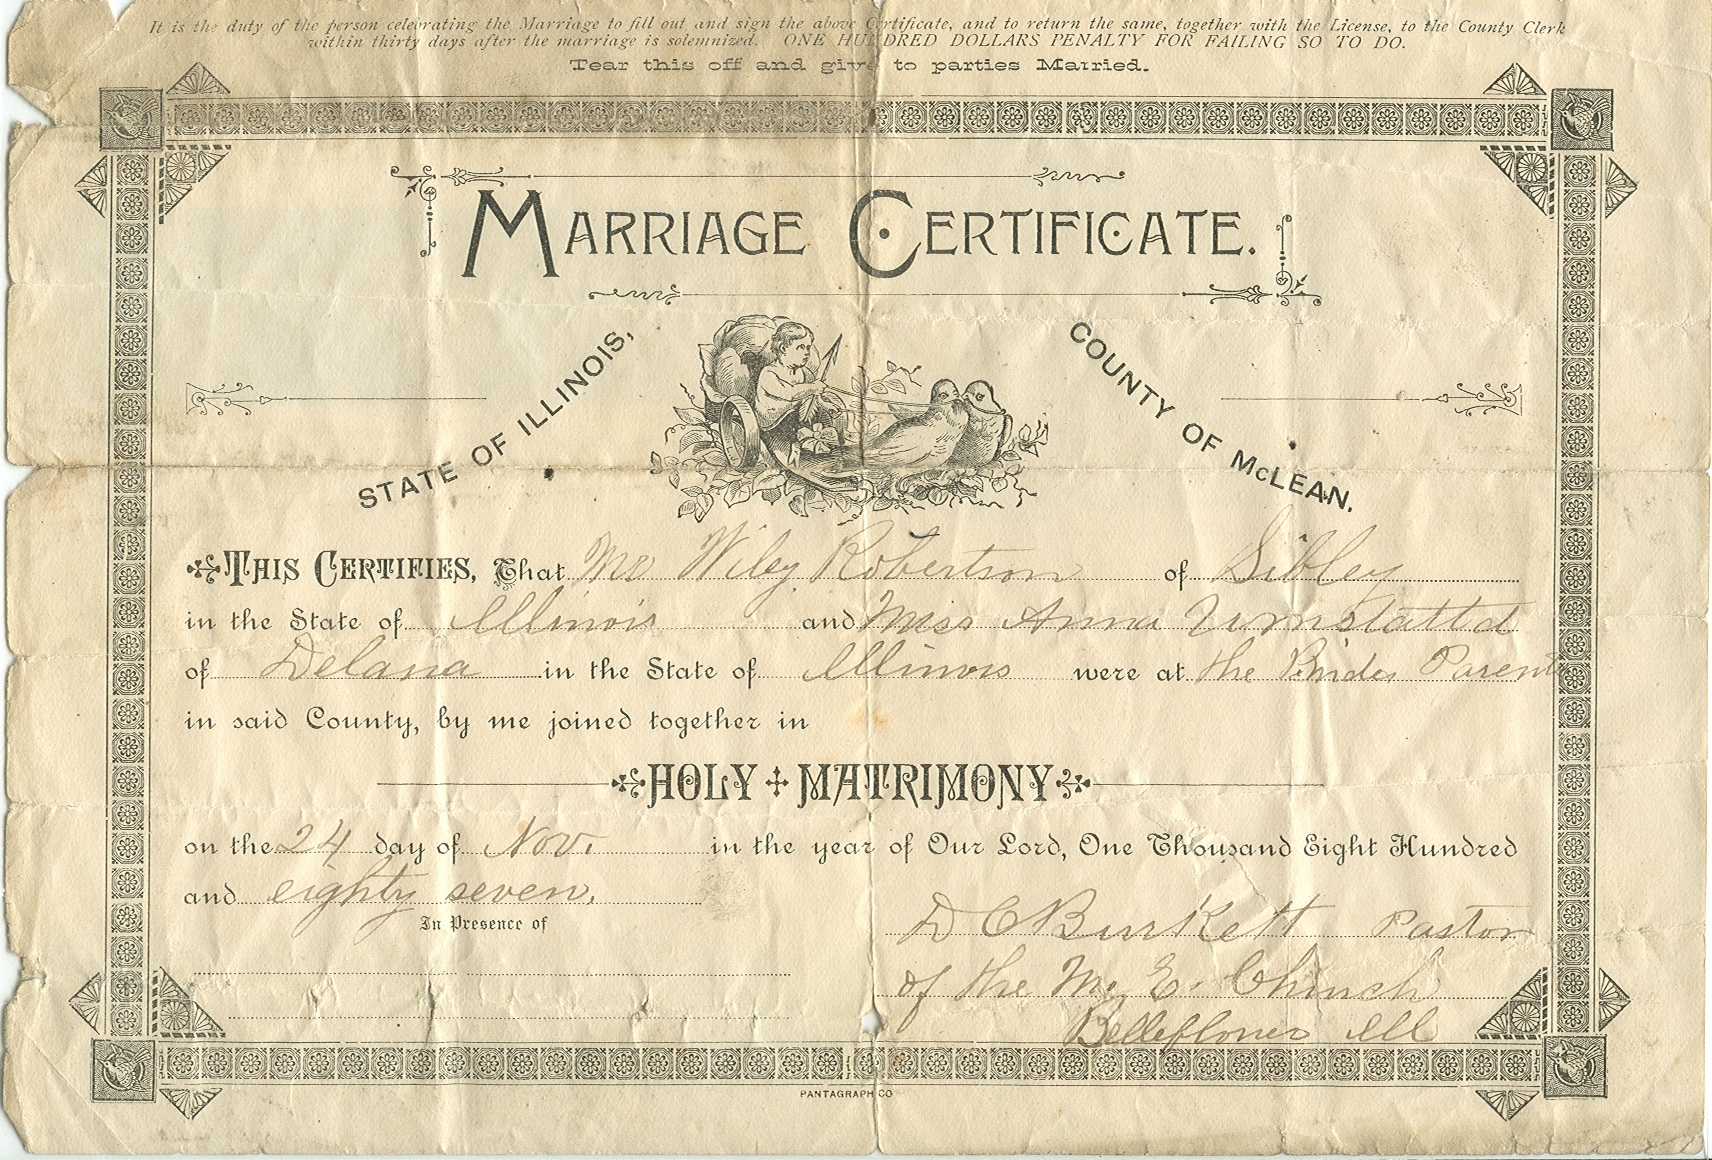 It is the duty of the person celebrating the Marriage to fill out and sign the above Certificate, and to return the same, together with the License, to the County Clerk
within thirty days after the marriage is solemnized. ONE HUNDRED DOLLARS PENALTY FOR FAILING SO TO DO.
Tear this off and give to parties Married.
MARRIAGE CERTIFICATE.
STATE OF ILLINOIS, COUNTY OF McLEAN.
THIS CERTIFIES, That Mr Wiley Robertson of Sibley
in the State of Illinois and Miss Anna Umstattd
of Delana in the State of Illinois were at the Brides Parents
in said County, by me joined together in
HOLY MATRIMONY
on the 24 day of Nov. in the year of Our Lord, One Thousand Eight Hundred
and eighty seven.
In Presence of
D C Burkett Pastor
of the M. E. Church
Belleflower Ill
PANTAGRAPH CO